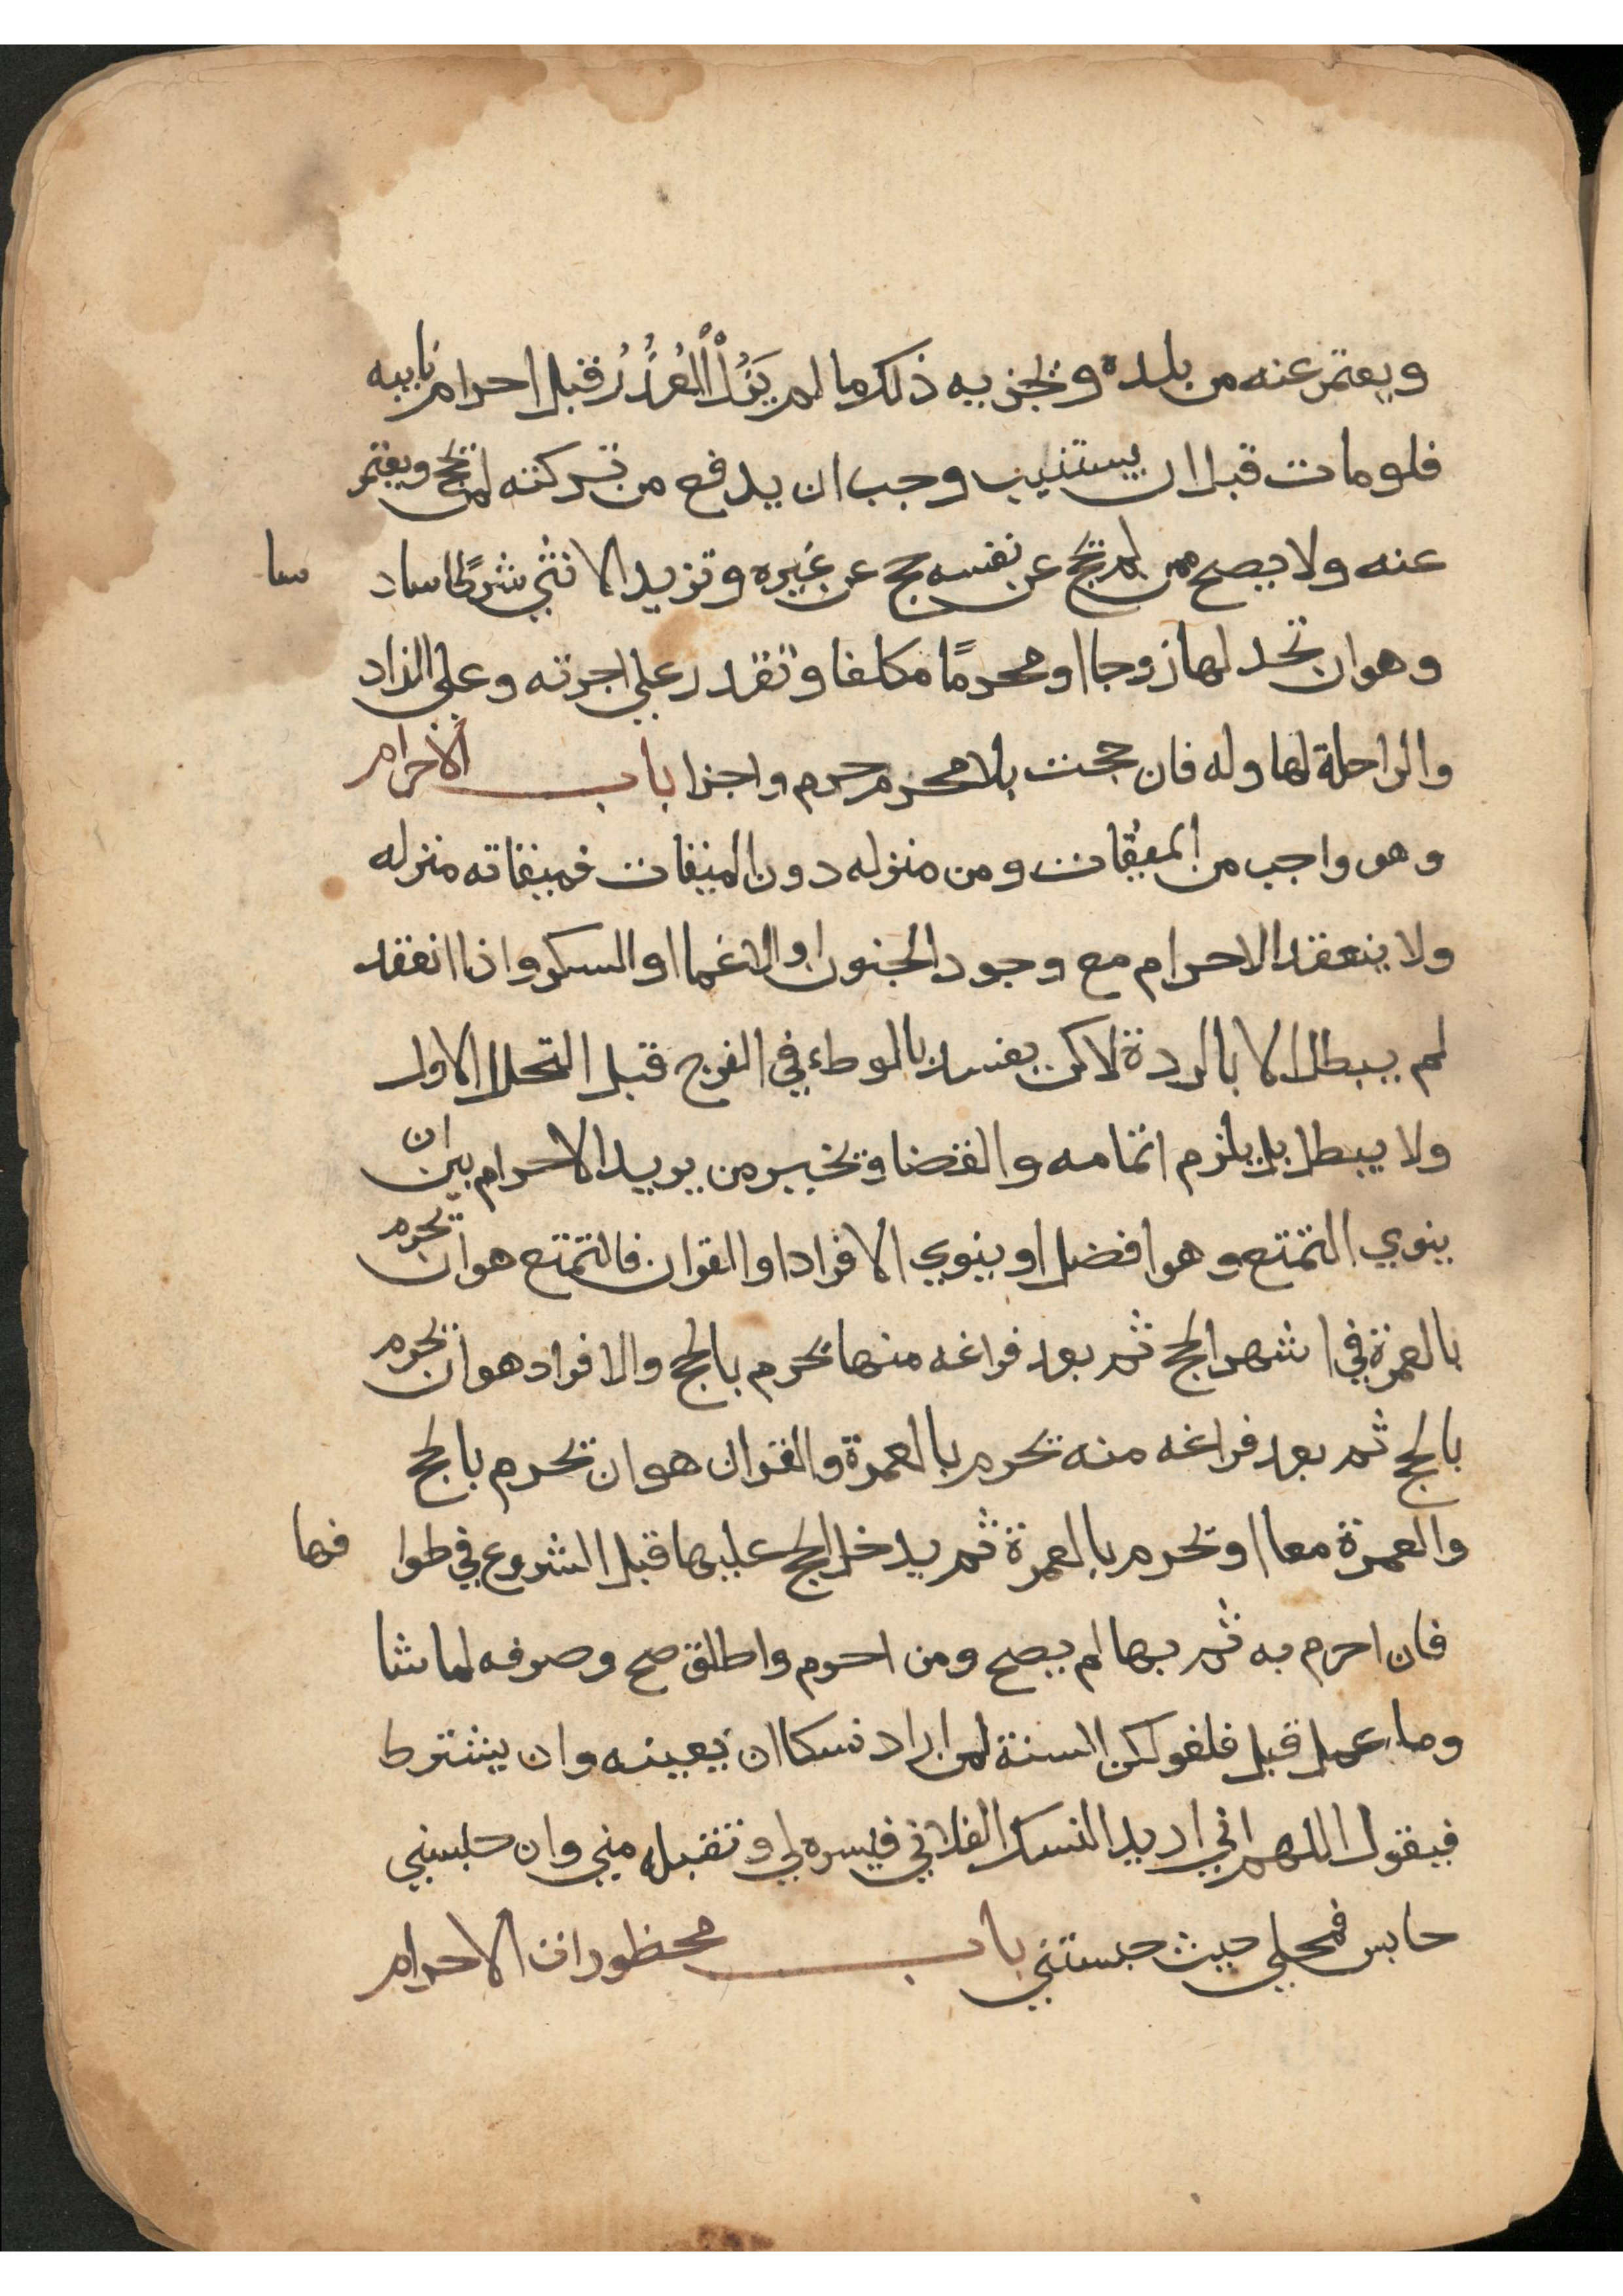 ويعتمر عنه من بلده ويجزيه ذلك ما لم يَزُلْ العُذُرُ قبل احرام نايبه
فلو مات قبل ان يستنيب وجب ان يدفع من تركته لمن يحج ويعتمر
عنه ولا يصح ممن لم يحج عن نفسه حج عن غيره وتزيد الانثي شرطًا ساد سا
وهو ان تجد لها زوجا او محرمًا مكلفا وتقدر علي اجرته وعلي الزاد
والراحلة لها وله فان حجت بلا محرم حرم واجزا باب الاحرام
وهو واجب من الميقات ومن منزله دون الميقات فميقاته منزله
ولا ينعقد الاحرام مع وجود الجنون او الاغما او السكر واذا انعقد
لم يبطل الا بالردة لاكن يفسد بالوطء في الفرج قبل التحلل الاول
ولا يبطل بل يلزم اتمامه والقضا ويخير من يريد الاحرام بين ان
ينوي التمتع وهو افضل او ينوي الافراد او القران فالتمتع هو ان يحرم
بالعمرة في اشهر الحج ثم بعد فراغه منها يحرم بالحج والافراد هو ان يحرم
بالحج ثم بعد فراغه منه يحرم بالعمرة والقران هو ان يحرم بالحج
والعمرة معا او يحرم بالعمرة ثم يدخل الحج عليها قبل الشروع في طوا فها
فان احرم به ثم بها لم يصح ومن احرم واطلق صح وصرفه لما شا
وما عمل قبل فلغو لكن السنة لمن اراد نسكا ان يعينه وان يشترط
فيقول اللهم اني اريد النسك الفلاني فيسره لي وتقبله مني وان حبسني
حابس فمحلي حيث حبستني باب محظورات الاحرام